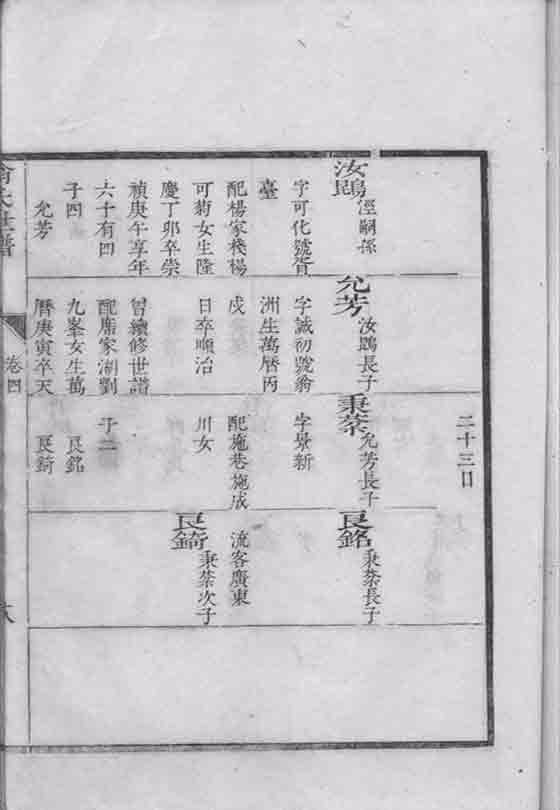 二十三日
汝鵾
涇嗣孫
字可化號晉
臺
配楊家棧楊
可莂女生隆
慶丁卯卒崇
禎庚午享年
六十有四
子四
允芳
允芳
汝鵾長子
字誠初號翁
洲生萬曆丙
戌
日卒順治
曾續修世譜
配廟家湖劉
九峯女生萬
曆庚寅卒天
秉棻
允芳長子
字景新
配施巷施成
川女
子二
良銘
良錡
良銘
秉棻長子
流客廣東
良錡
秉棻次子
氏世譜
卷四